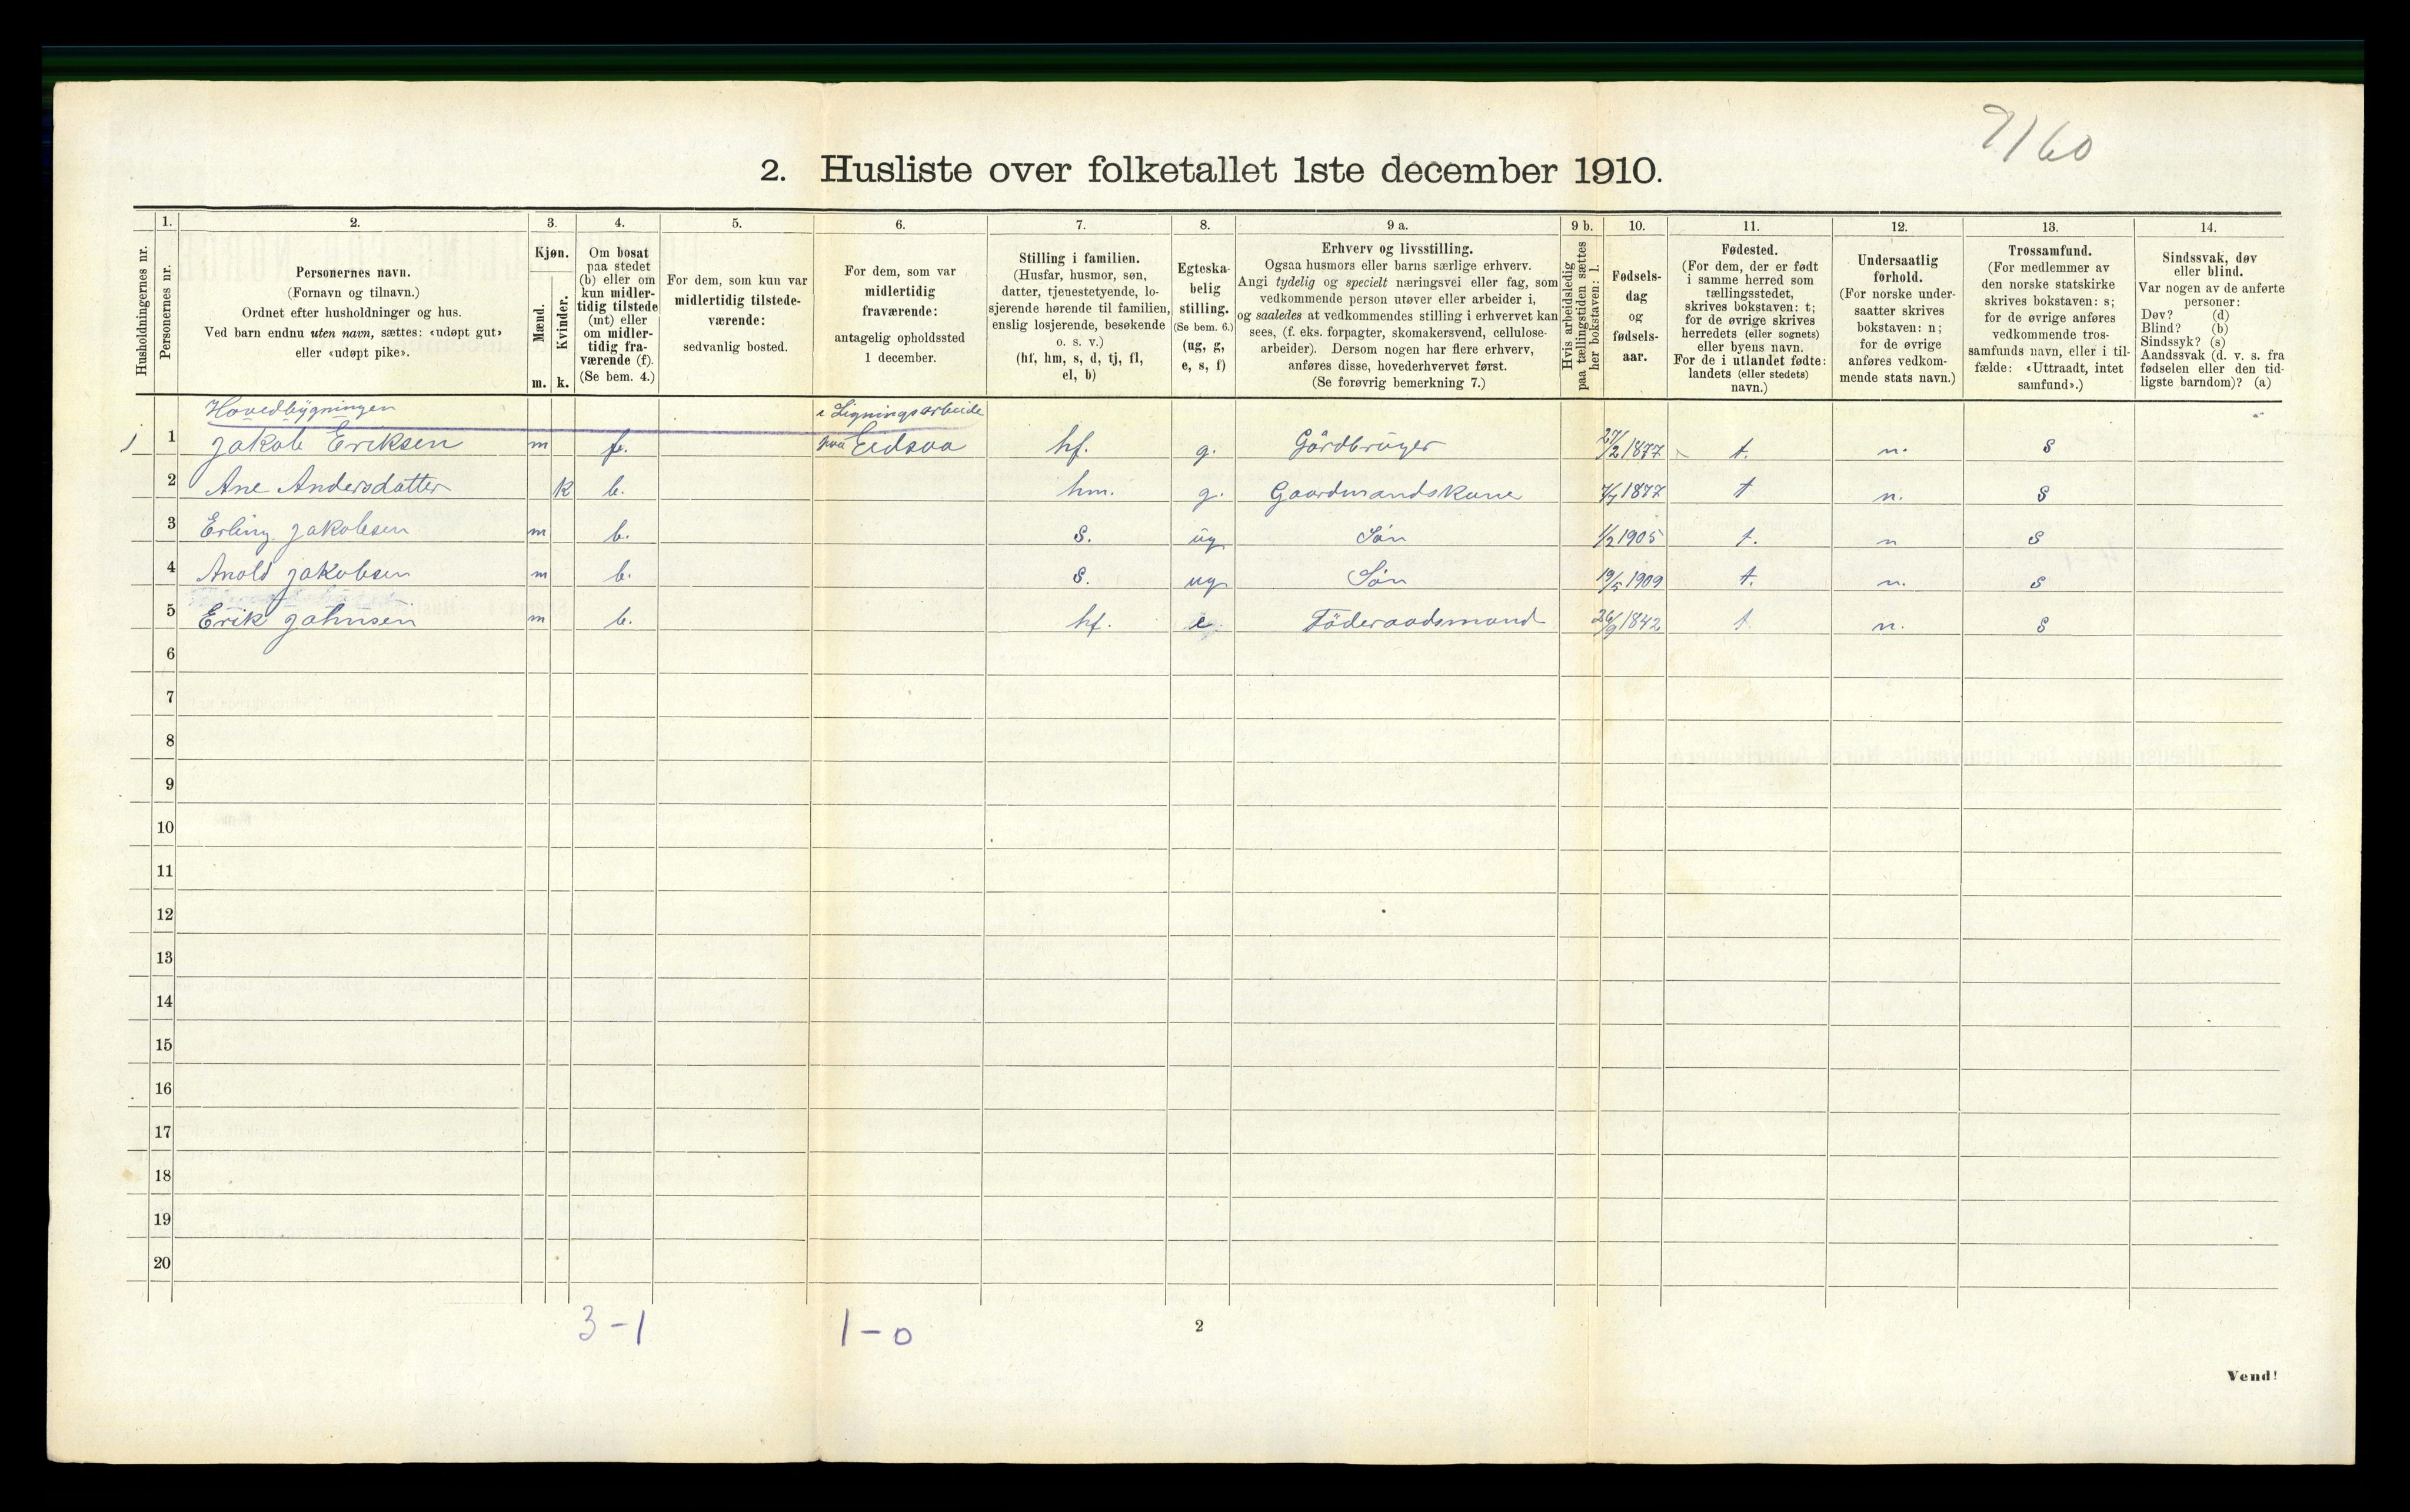 7160
2. Husliste over folketallet 1ste december 1910.
Husholdningernes nr.
1.
Personernes nr.
2.
Personernes navn.
(Fornavn og tilnavn.)
Ordnet efter husholdninger og hus.
Ved barn endnu uten navn, sættes: «udøpt gut»
eller «udøpt pike».
3.
Kjøn.
Mænd.
Kvinder.
m. k.
4.
Om bosat
paa stedet
(b) eller om
kun midler-
tidig tilstede
(mt) eller
om midler-
tidig fra-
værende (f).
(Se bem. 4.)
5.
For dem, som kun var
midlertidig tilstede-
værende:
sedvanlig bosted.
6.
For dem, som var
midlertidig
fraværende:
antagelig opholdssted
1 december.
7.
Stilling i familien.
(Husfar, husmor, søn,
datter, tjenestetyende, lo-
sjerende hørende til familien,
enslig losjerende, besøkende
o. s. v.)
(hf, hm, s, d, tj, fl,
el, b)
8.
Egteska-
belig
stilling.
(Se bem. 6.)
(ug, g,
e, s, f)
9 a.
Erhverv og livsstilling.
Ogsaa husmors eller barns særlige erhverv.
Angi tydelig og specielt næringsvei eller fag, som
vedkommende person utøver eller arbeider i,
og saaledes at vedkommendes stilling i erhvervet kan
sees, (f. eks. forpagter, skomakersvend, cellulose-
arbeider). Dersom nogen har flere erhverv,
anføres disse, hovederhvervet først.
(Se forøvrig bemerkning 7.)
9 b.
Hvis arbeidsledig
paa tællingstiden sættes
her bokstaven: l.
10.
Fødsels-
dag
og
fødsels-
aar.
11.
Fødested.
(For dem, der er født
i samme herred som
tællingsstedet,
skrives bokstaven: t;
for de øvrige skrives
herredets (eller sognets)
eller byens navn.
For de i utlandet fødte:
landets (eller stedets)
navn.)
12.
Undersaatlig
forhold.
(For norske under-
saatter skrives
bokstaven: n;
for de øvrige
anføres vedkom-
mende stats navn.)
13.
Trossamfund.
(For medlemmer av
den norske statskirke
skrives bokstaven: s;
for de øvrige anføres
vedkommende tros-
samfunds navn, eller i til-
fælde: «Uttraadt, intet
samfund».)
14.
Sindssvak, døv
eller blind.
Var nogen av de anførte
personer:
Døv? (d)
Blind? (b)
Sindssyk? (s)
Aandssvak (d. v. s. fra
fødselen eller den tid-
ligste barndom)? (a)
Hovedbygningen i Ligningsarbeide
1 1 Jakob Eriksen m f. paa Eidsaa hf. g. Gårdbruger 27/2 1877 t. n. s
2 Ane Andersdatter k b. hm. g. Gaardmandskone 7/7 1877 t n. s
3 Erling Jakobsen m b. s. ug Søn 1/2 1905 t. n s
4 Anold Jakobsen m b. s. ug Søn 19/5 1909 t. n. s
5 Erik Johnsen m b. hf. e. Föderaadsmand 26/9 1842 t n. s
6
7
8
9
10
11
12
13
14
15
16
17
18
19
20
3-1 1-0
2
Vend!